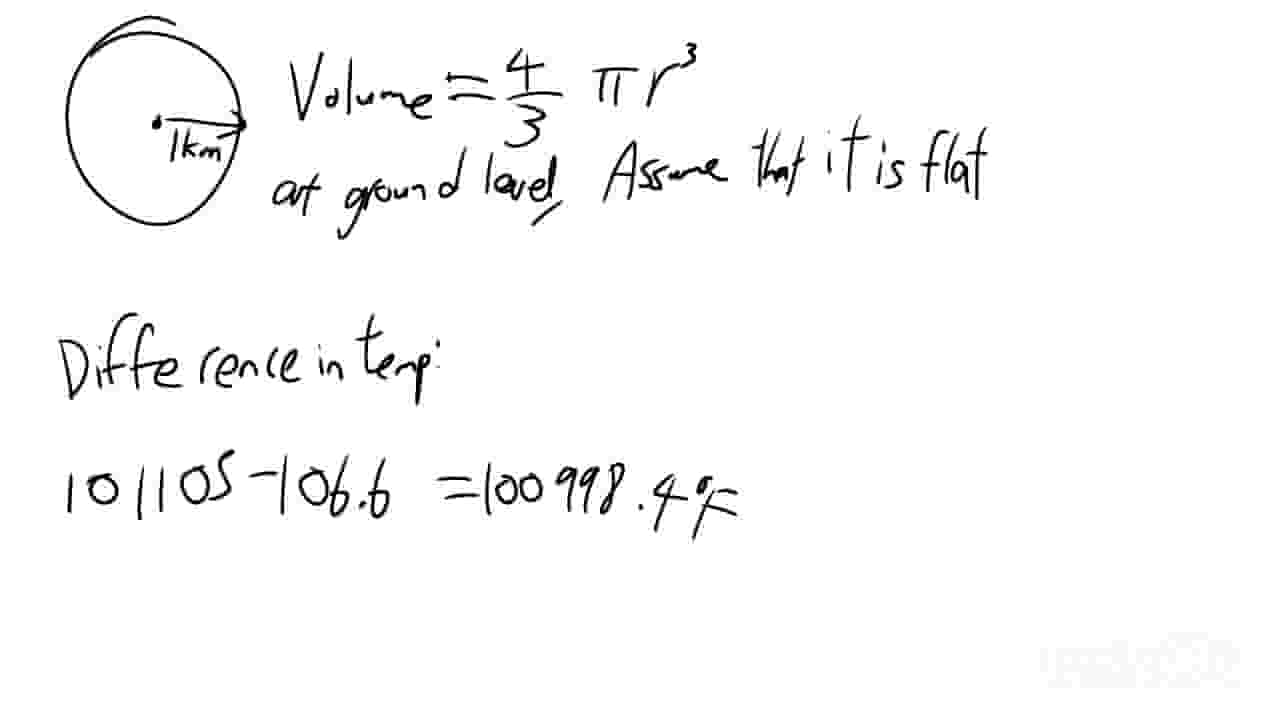 Volume = 4/3 πr³
1km
at ground level, Assume that it is flat
Difference in temp:
101105 - 106.6 = 100998.4°F